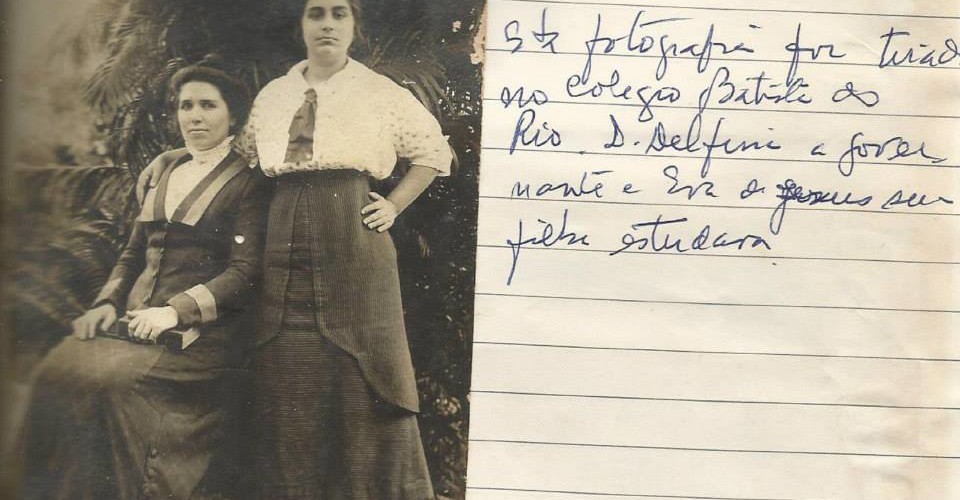 Sta fotografia foi tirad
no Colegio Batista do
Rio. D. Delfina a gover
nante e Eva de Jesus sua
filha estudava